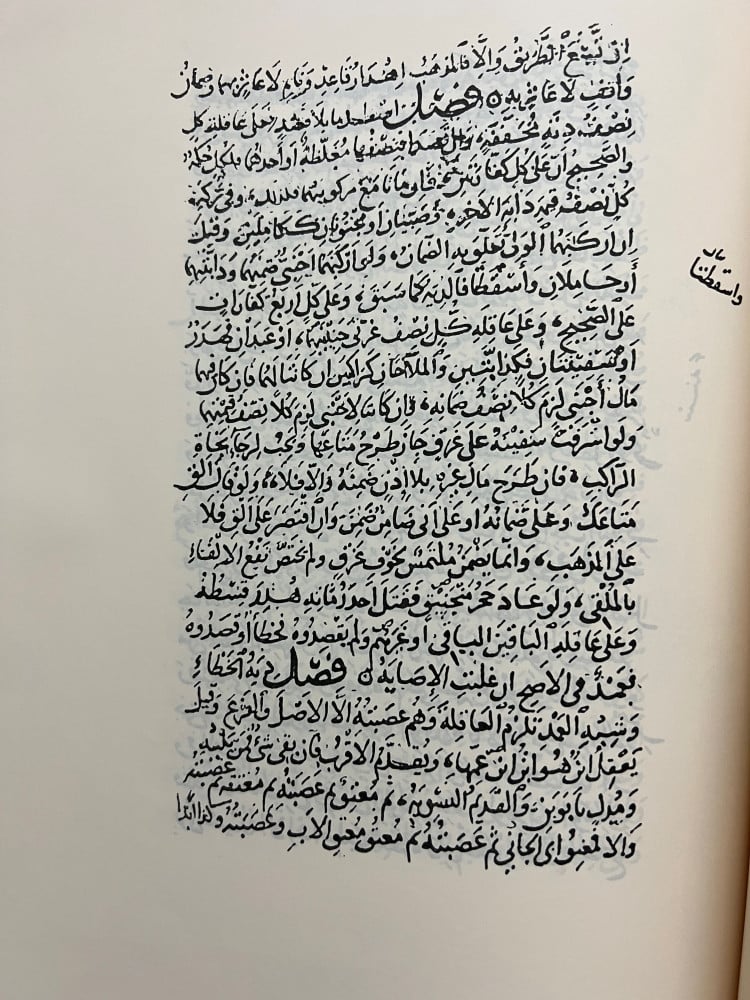 ان تسع الطريق والا فالمذهب اهدار قاعد ونايم لا عاثر بهما وضمان
واقف لا عاثر به فصل اصطدما بلا قصد فعلى عاقلة كل
نصف دية مخففة، وان قصدا فنصفها مغلظة او احدهما فلكل حكمه
والصحيح ان على كل كفارتين فان ماتا مع مركوبيهما فكذلك، وفي تركة
كل نصف قيمة دابة الاخر، وصبيان او مجنونان ككاملين وقيل
ان اركبهما الولى تعلق به الضمان، ولو اركبهما اجنبى ضمنهما ودابتيهما
أو حاملان وأسقطتا فالدية كما سبق، وعلى كل اربع كفارات
على الصحيح، وعلى عاقلة كل نصف غرتى جنينيهما، او عبدان فهدر
او سفينتان فكدابتين والملاحان كراكبين ان كانتا لهما فان كان فيهما
مال أجنبى لزم كلا نصف ضمانه، فان كانتا لاجنبى لزم كلا نصف قيمتهما
ولو اشرفت سفينة على غرق جاز طرح متاعها ويجب لرجاء نجاة
الراكب، فان طرح مال غيره بلا اذن ضمنه والا فلا، ولو قال الق
متاعك وعلى ضمانه او على انى ضامن ضمن وان اقتصر على الق فلا
على المذهب، وانما يضمن ملتمس لخوف غرق ولم يختص نفع الالقاء
بالملقى، ولو عاد حجر منجنيق فقتل احد رماته هدر قسطه
وعلى عاقلة الباقين الباقى أو غيرهم ولم يقصدوه فخطأ أو قصدوه
فعمد فى الاصح ان غلبت الاصابة فصل دية الخطاء
وشبه العمد تلزم العاقلة وهم عصبته الا الاصل والفرع وقيل
يعقل ابن هو ابن ابن عمها، ويقدم الاقرب فان بقى شى فمن يليه
ومدل بابوين والقديم التسوية، ثم معتق ثم عصبته ثم معتقه ثم عصبته
والا فمعتق ابى الجانى ثم عصبته ثم معتق معتق الاب وعصبته وكذا ابدا
واسقطتا